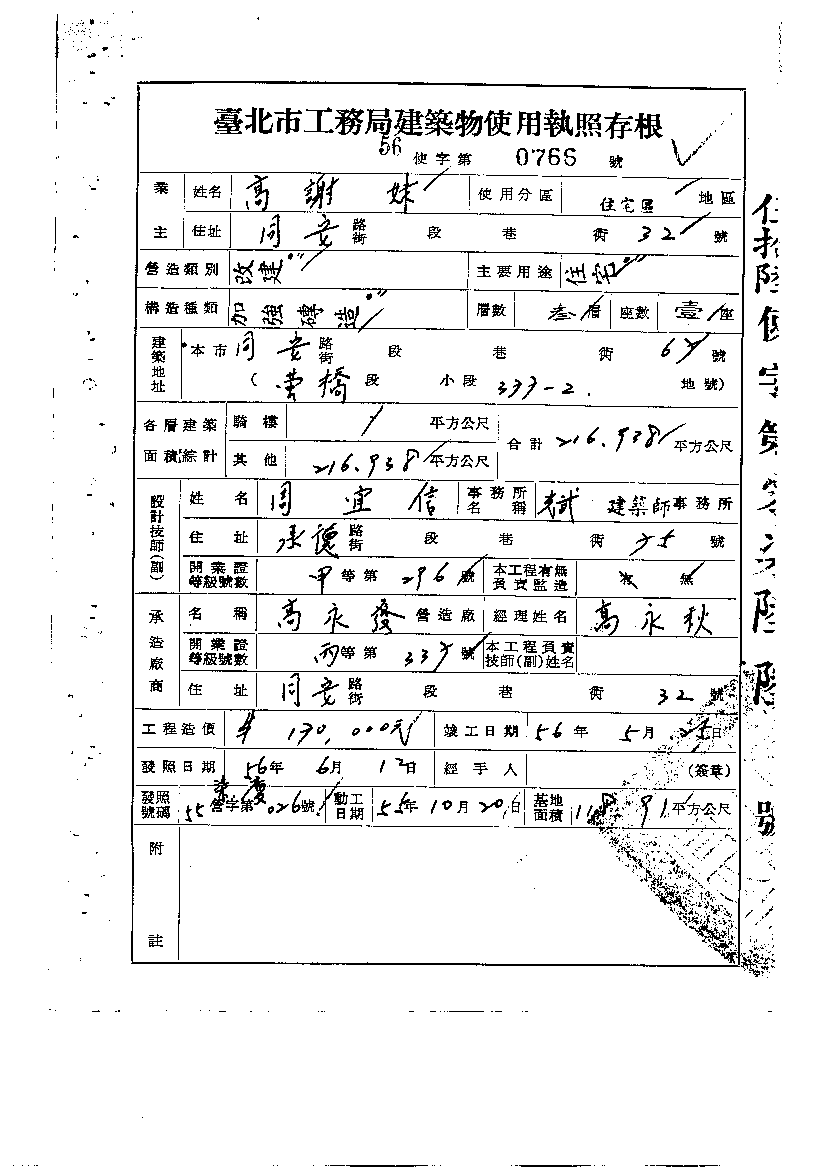 臺北市工務局建築物使用執照存根
56 使字第 0766 號
業主 姓名 高謝妹 使用分區 住宅區 地區
住址 同安 路街 段 巷 街 32 號
營造類別 改建 主要用途 住宅
構造種類 加強磚造 層數 叁層 座數 壹座
建築地址 本市 同安 路街 段 巷 街 號
( 段 小段 337-2 地號)
各層建築面積綜計 騎樓 平方公尺 合計 216.938 平方公尺
其他 216.938 平方公尺
設計技師(副) 姓名 周宜信 事務所名稱 建築師事務所
住址 承德 路街 段 巷 街 號
開業證等級號數 甲等第 296 號 本工程有無負責監造 有 無
承造廠商 名稱 高永發 營造廠 經理姓名 高永秋
開業證等級號數 丙等第 號 本工程負責技師(副)姓名
住址 同安 路街 段 巷 街 32 號
工程造價 130,000元 竣工日期 56年 5月 日
發照日期 56年 6月 12日 經手人 (簽章)
發照號碼 55 營字第 026 號 動工日期 55年10月20日 基地面積 91 平方公尺
附註
伍拾陸使字第零柒陸陸號